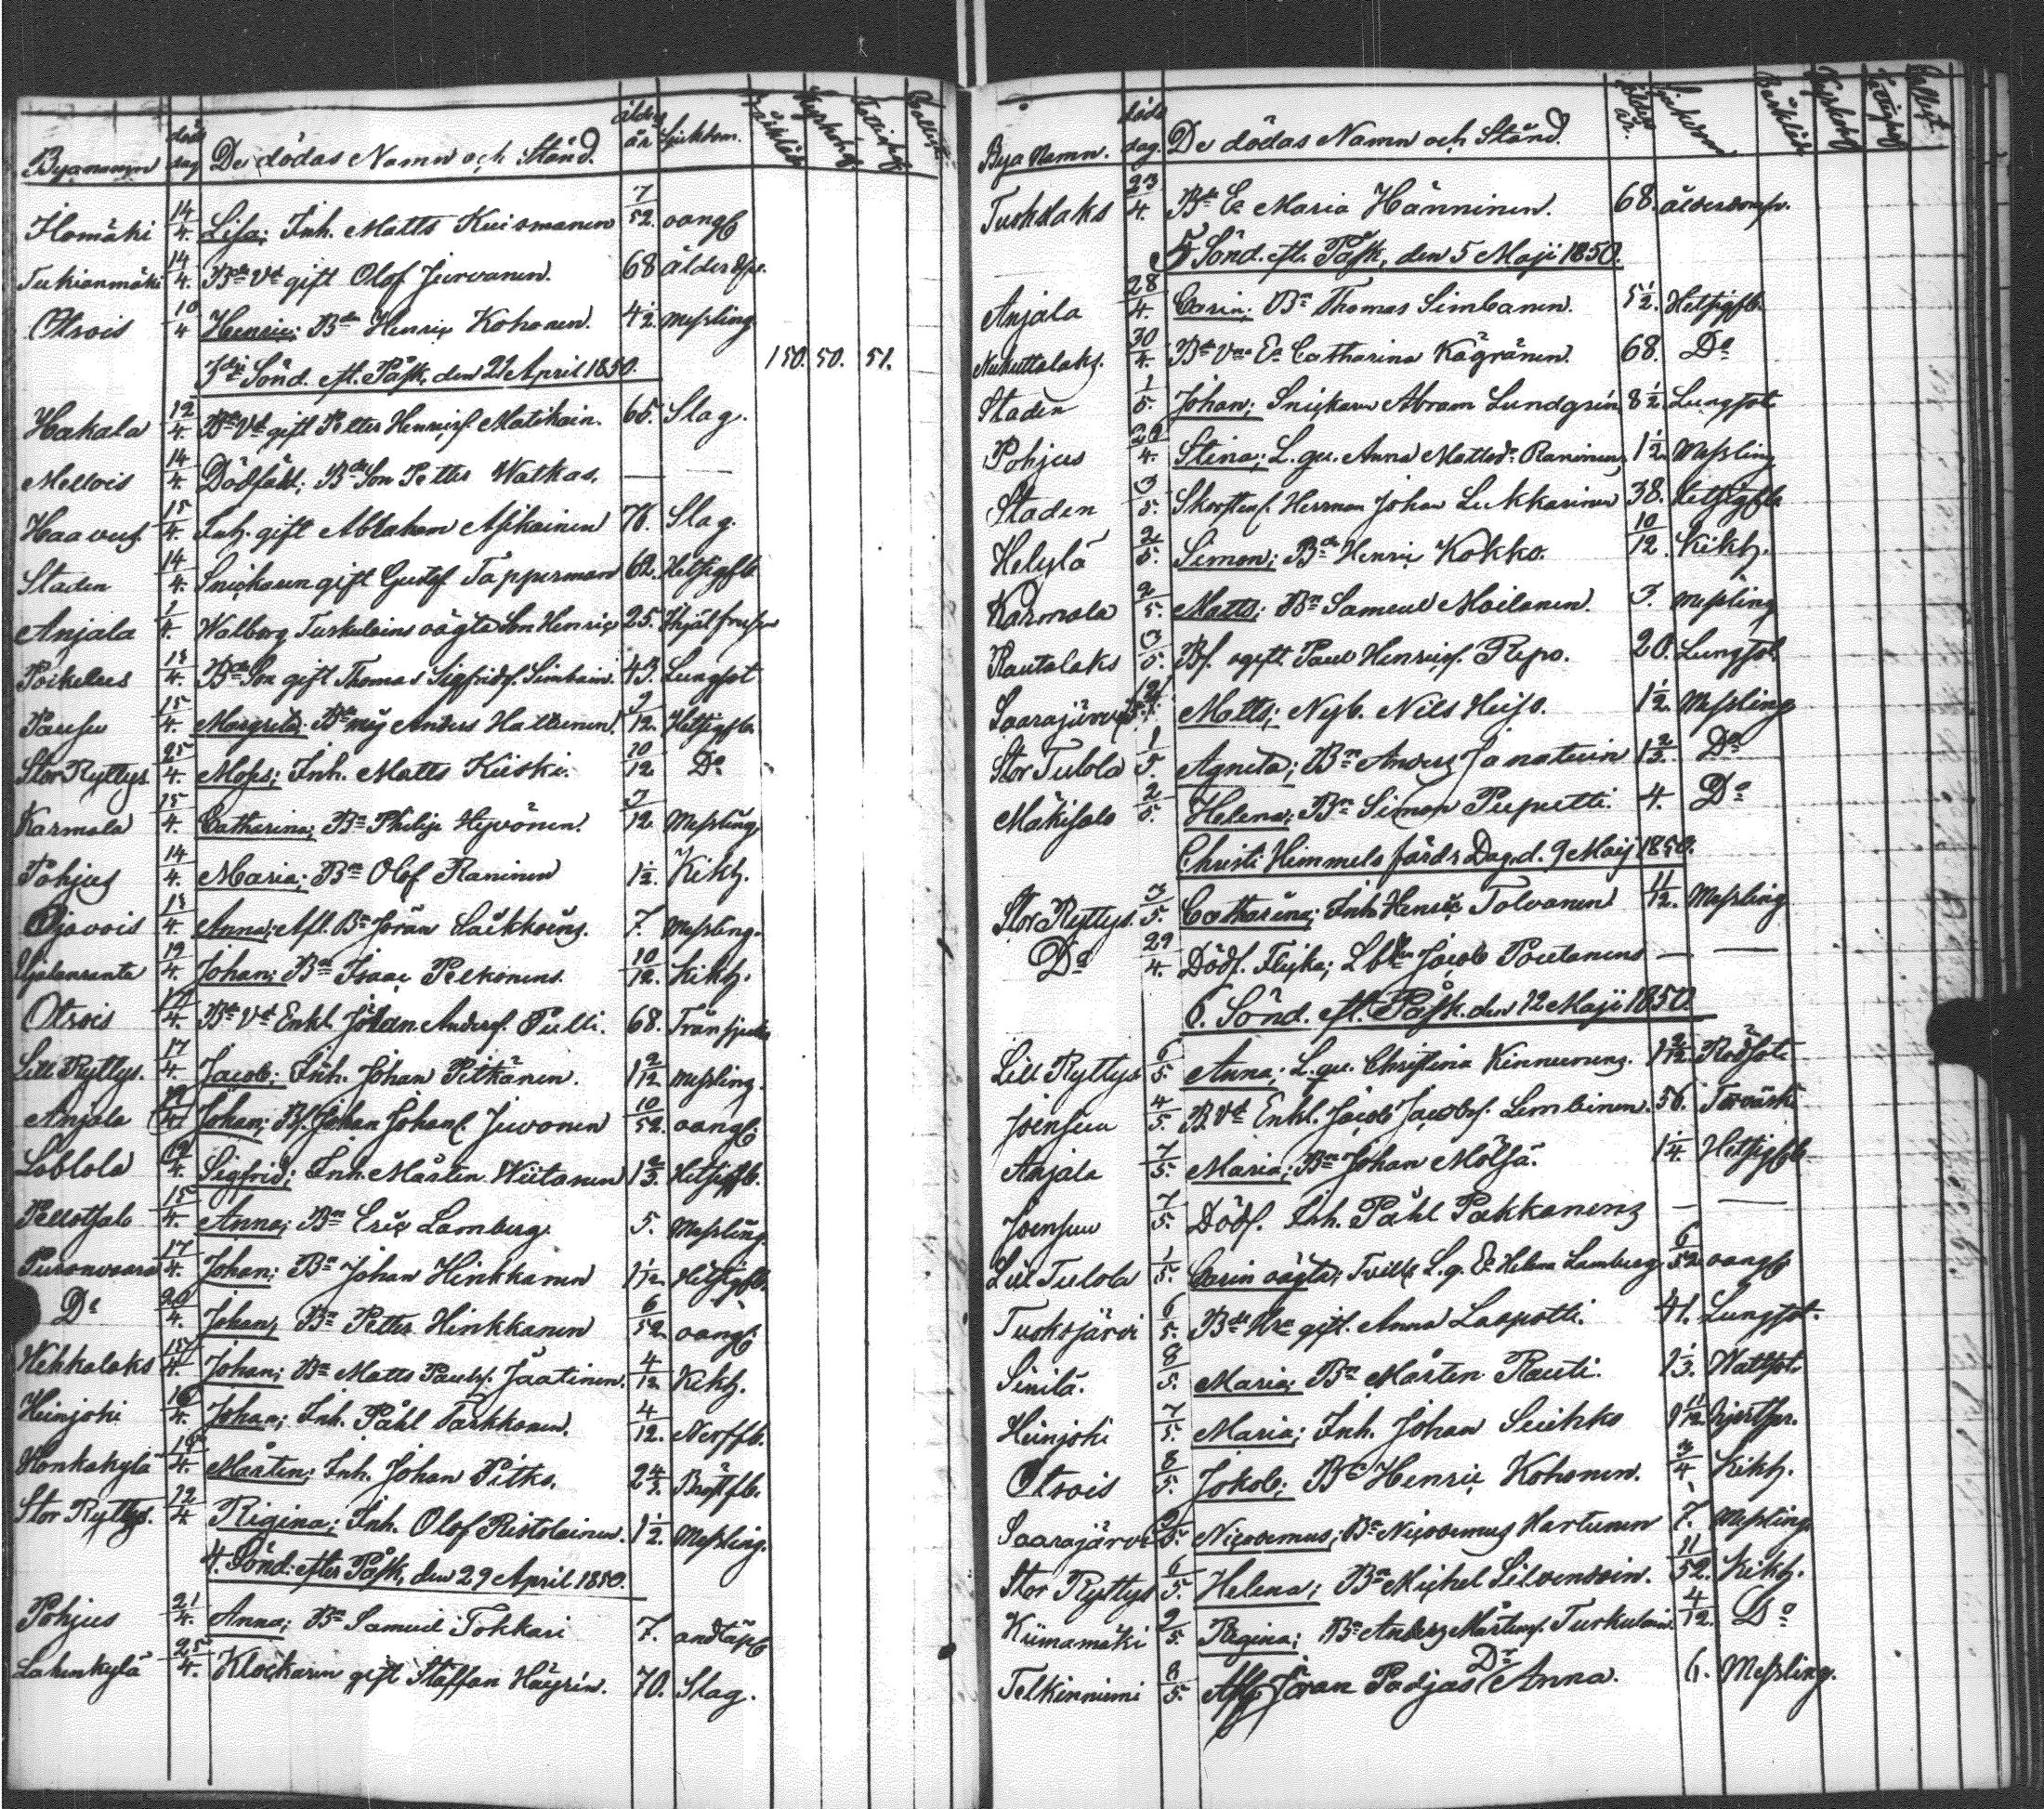 Byanamn döds dag De dödas Namn och Stånd. ålder år Sjukdom.
Ilomäki 14/4. Lisa; Inh. Matts Kuismanen 7/52. oangf
Tukianmäki 14/4. Bde Vd gift Olof Jurvanen. 68 ålderdfr.
Otsois 10/4 Henric; Bde Henric Kohonen. 4 1/2. messling
3die Sönd. eft. Påsk, den 21 April 1850. 150. 50. 51.
Hakala 12/4. Bde Vd gift Petter Henrics. Matikain. 65. Slag.
Mellois 14/4. Dödfödt; Bde Son Petter Watkas. —
Haavus 15/4. Inh. gift Abraham Asikainen 76. Slag.
Staden 14/4. Snickaren gift Gustaf Tapperman 62. Hetsigfb.
Anjala 1/4. Walborg Turkulains oägta Son Henric 25. Ihjälfrusen
Poikelus 13/4. Bde Son gift Thomas Sigfrids. Simbain. 43. Lungsot
Pausu 15/4. Margreta; Bde måg Anders Hattunen 9/12. Hetsigfb.
Stor Ryttys. 25/4. Moses; Inh. Matts Kiiski. 10/12 Do
Karmala 15/4. Catharina; Bn Philip Hyvönen. 9/12. Messling
Pohjus 14/4. Maria; Bn Olof Raninen 1 1/2. Kikh.
Ojavois 13/4. Anna; Afl. Bn Jöran 7. Messling.
14/4. Johan; Bn Isaac Pelkonens. 10/12. Kikh.
Otsois 14/4. Bde Vd Enkl. Johan Anders. Pulli. 68. Tränsjuka
Lill Ryttys. 17/4. Jacob; Inh. Johan Pitkänen. 1 2/12 messling.
Anjala Johan; Bs. Johan Johans. Juvonen 10/52. oangf.
Loblola 19/4. Sigfrid; Inh. Mårten Wiitanen 1 2/3. Hetsigfb.
Pellotsalo 15/4. Anna; Bn Eric Lamberg. 5. Messling.
Puronvaara 17/4. Johan; Bn Johan Hinkkanen 1 1/12. Hetsigfb.
Do 20/4. Johan; Bn Petter Hinkkanen 6/52. oangf
Hekkalaks 15/4. Johan; Bn Matts Pauls. Jäätinen. 4/12 Kikh.
Heinjoki 16/4. Johan; Inh. Påhl Tarkkonen. 4/12. Nerffb.
Honkakylä 19/4. Mårten; Inh. Johan Pitko. 2 Bröstfb.
Stor Ryttys. 12/4 Rigina; Inh. Olof Ristolainen. 1 1/2. Messling.
4. Sönd: efter Påsk, den 29 April 1850.
Pohjus 21/4. Anna; Bn Samuel Tokkari 7. andtäpf
Lahenkylä 25/4. Klockaren gift Staffan Häyrén. 70. Slag.
Bya Namn. döds dag. De dödas Namn och Stånd. ålder år. Sjukdom
Tuokslaks 23/4. Bde Ea Maria Hänninen. 68. ålderdomsfr.
5 Sönd. eft. Påsk, den 5 Maji 1850.
Anjala 28/4. Carin; Bn Thomas Simbanen. 5 1/2. Hetsigfb.
Nukuttalaks. 30/4. Bde Vna Ea Catharina Kägränen. 68. Do
Staden 1/5. Johan; Snickaren Abram Lundgrén 8 1/2. Lungsot
Pohjus 29/4. Stina; L. qu. Anna Mattsdr. Raninen 1 1/2. Messling
Staden 3/5. Skorstensf. Herman Johan Lukkarinen 38. Hetsigfb.
Helylä 2/5. Simon; Bde Henric Kokko. 10/12. Kikh.
Karmala 2/5. Matts; Bn Samuel Moilanen. 3. messling
Rautalaks 3/5. Bs. ogift Paul Henrics. Repo. 20. Lungsot.
Saarajärvi Matts; Nyb. Nils Huiso. 1 1/2. Messling
Stor Tulola 1/5. Agneta; Bn Anders Janatuin 1 2/3. Do
Mäkisalo 2/5. Helena; Bn Simon Puputti. 4. Do
Christi Himmels färds Dag, d. 9 Maij 1850.
Stor Ryttys. 3/5. Catharina; Inh. Henric Tolvanen 11/12. Messling
Do 29/4. Dödf. Flicka; Jacob Poutanens — —
6. Sönd. eft. Påsk. den 12 Maji 1850.
Lill Ryttys 6/5. Anna; L. qu. Christina Kinnunens. 1 2/12. Rödsot
Joensuu 4/5. B. Vd Enkl. Jacob Jacobs. Lembinen. 56. Torrvärk
Anjala 7/5. Maria; Bn Johan Mölsä. 1 1/4. Hetsigfb.
Joensuu 7/5. Dödf. Inh. Påhl Pakkanens — —
Lill Tulola 1/5. Carin oägta; Tvill. L. q. Ea Helena Lamberg 6/52 oangf.
Tuoksjärvi 6/5. Bde Hu gift. Anna Laapotti. 41. Lungsot.
Sinilä. 8/5. Maria; Bn Mårten Rauti. 1 1/3. Wattsot.
Heinjoki 7/5. Maria; Inh. Johan Seikko 1 11/12. hjertspr.
Otsois 8/5. Jakob; Bn Henric Kohonen. 3/4. Kikh.
Saarajärvi Nicodemus; Bn Nicodemus Hartunen 7. Messling
Stor Ryttys 6/5. Helena; Bn Michel Silvendoin. 11/52. Kikh.
Kiimamäki 9/5. Regina; Bn Anders Mårtens. Turkulain. 4/12. Do
Telkinniemi 8/5. Afsk. Jöran Padjas Dr Anna. 6. Messling.